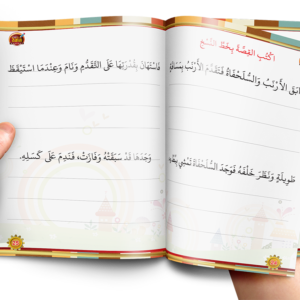 اكْتُبِ القِصَّةَ بِخَطِّ النَّسْخِ
سَابَقَ الأَرْنَبُ وَالسُّلَحْفَاةُ فَتَقَدَّمَ الأَرْنَبُ بِمَسَافَةٍ
طَوِيلَةٍ وَنَظَرَ خَلْفَهُ فَوَجَدَ السُّلَحْفَاةَ تَمْشِي بِبُطْءٍ
فَاسْتَهَانَ بِقُدْرَتِهَا عَلَى التَّقَدُّمِ وَنَامَ وَعِنْدَمَا اسْتَيْقَظَ
وَجَدَهَا قَدْ سَبَقَتْهُ وَفَازَتْ، فَنَدِمَ عَلَى كَسَلِهِ.